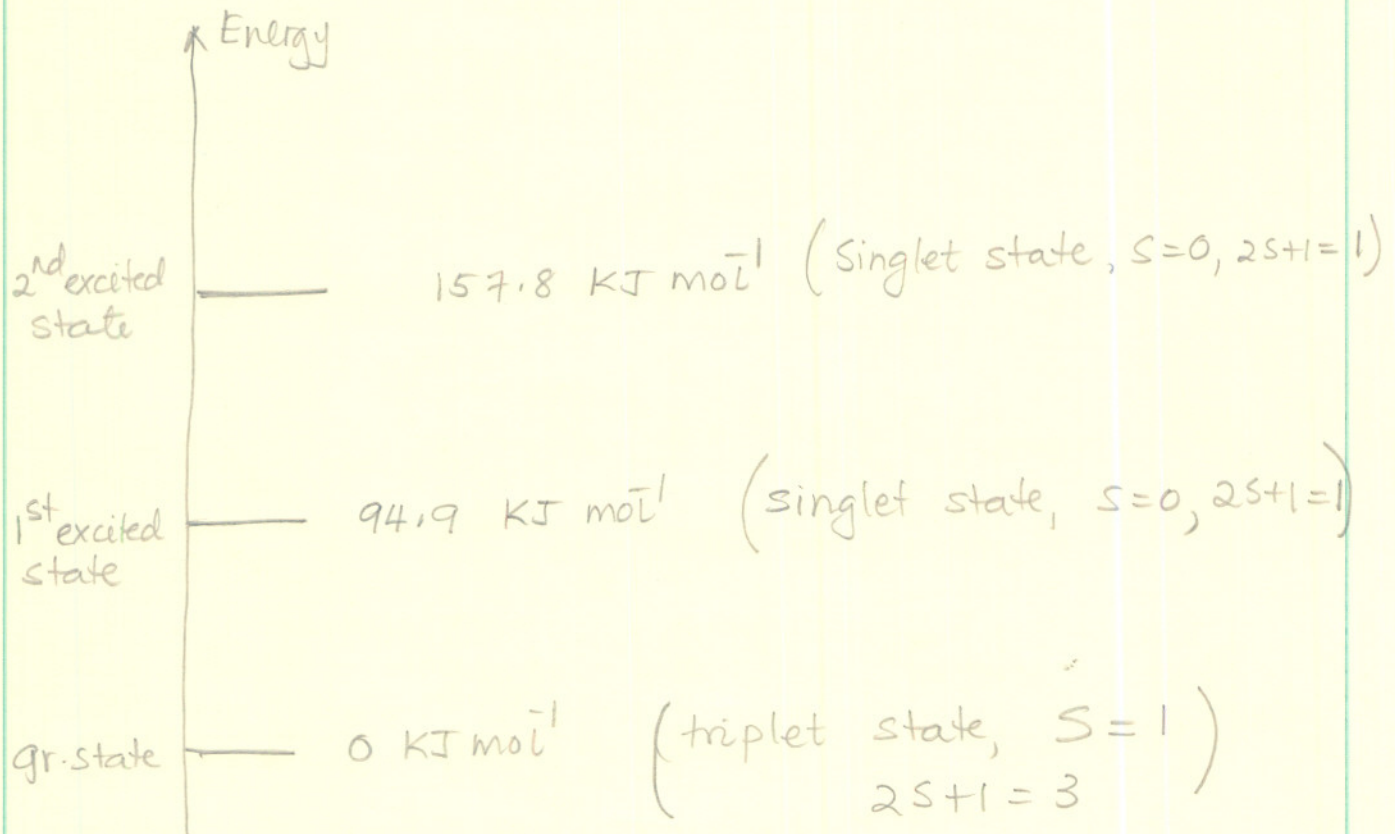 Energy
2nd excited state 157.8 KJ mol⁻¹ (Singlet state, S=0, 2S+1=1)
1st excited state 94.9 KJ mol⁻¹ (singlet state, S=0, 2S+1=1)
gr. state 0 KJ mol⁻¹ (triplet state, S=1
2S+1=3)